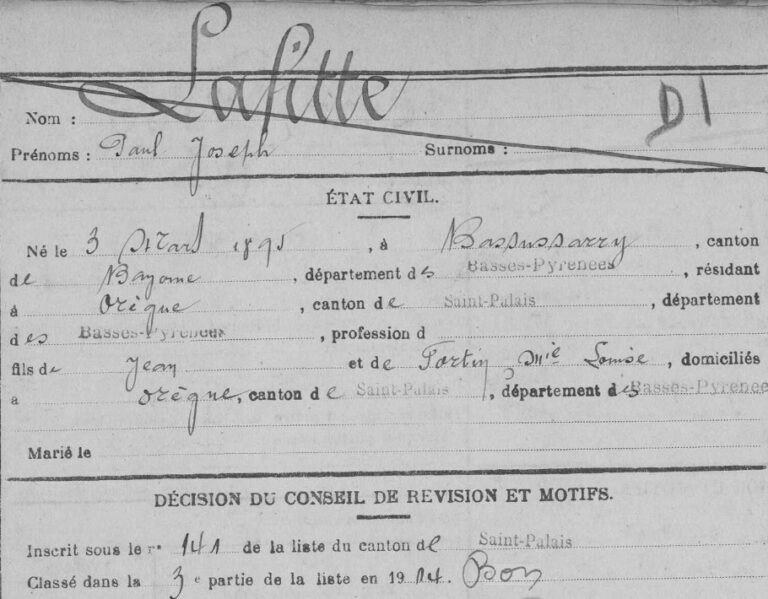 Lafitte
Nom :
D1
Prénoms : Paul Joseph Surnoms :
ÉTAT CIVIL.
Né le 3 Mars 1895, à Bassussarry, canton
de Bayonne, département des Basses-Pyrénées, résidant
à Orègue, canton de Saint-Palais, département
des Basses-Pyrénées, profession d
fils de Jean et de Fortin Mie Louise, domiciliés
à Orègue, canton de Saint-Palais, département des Basses-Pyrénée
Marié le
DÉCISION DU CONSEIL DE REVISION ET MOTIFS.
Inscrit sous le n° 141 de la liste du canton de Saint-Palais
Classé dans la 3e partie de la liste en 19 Bon